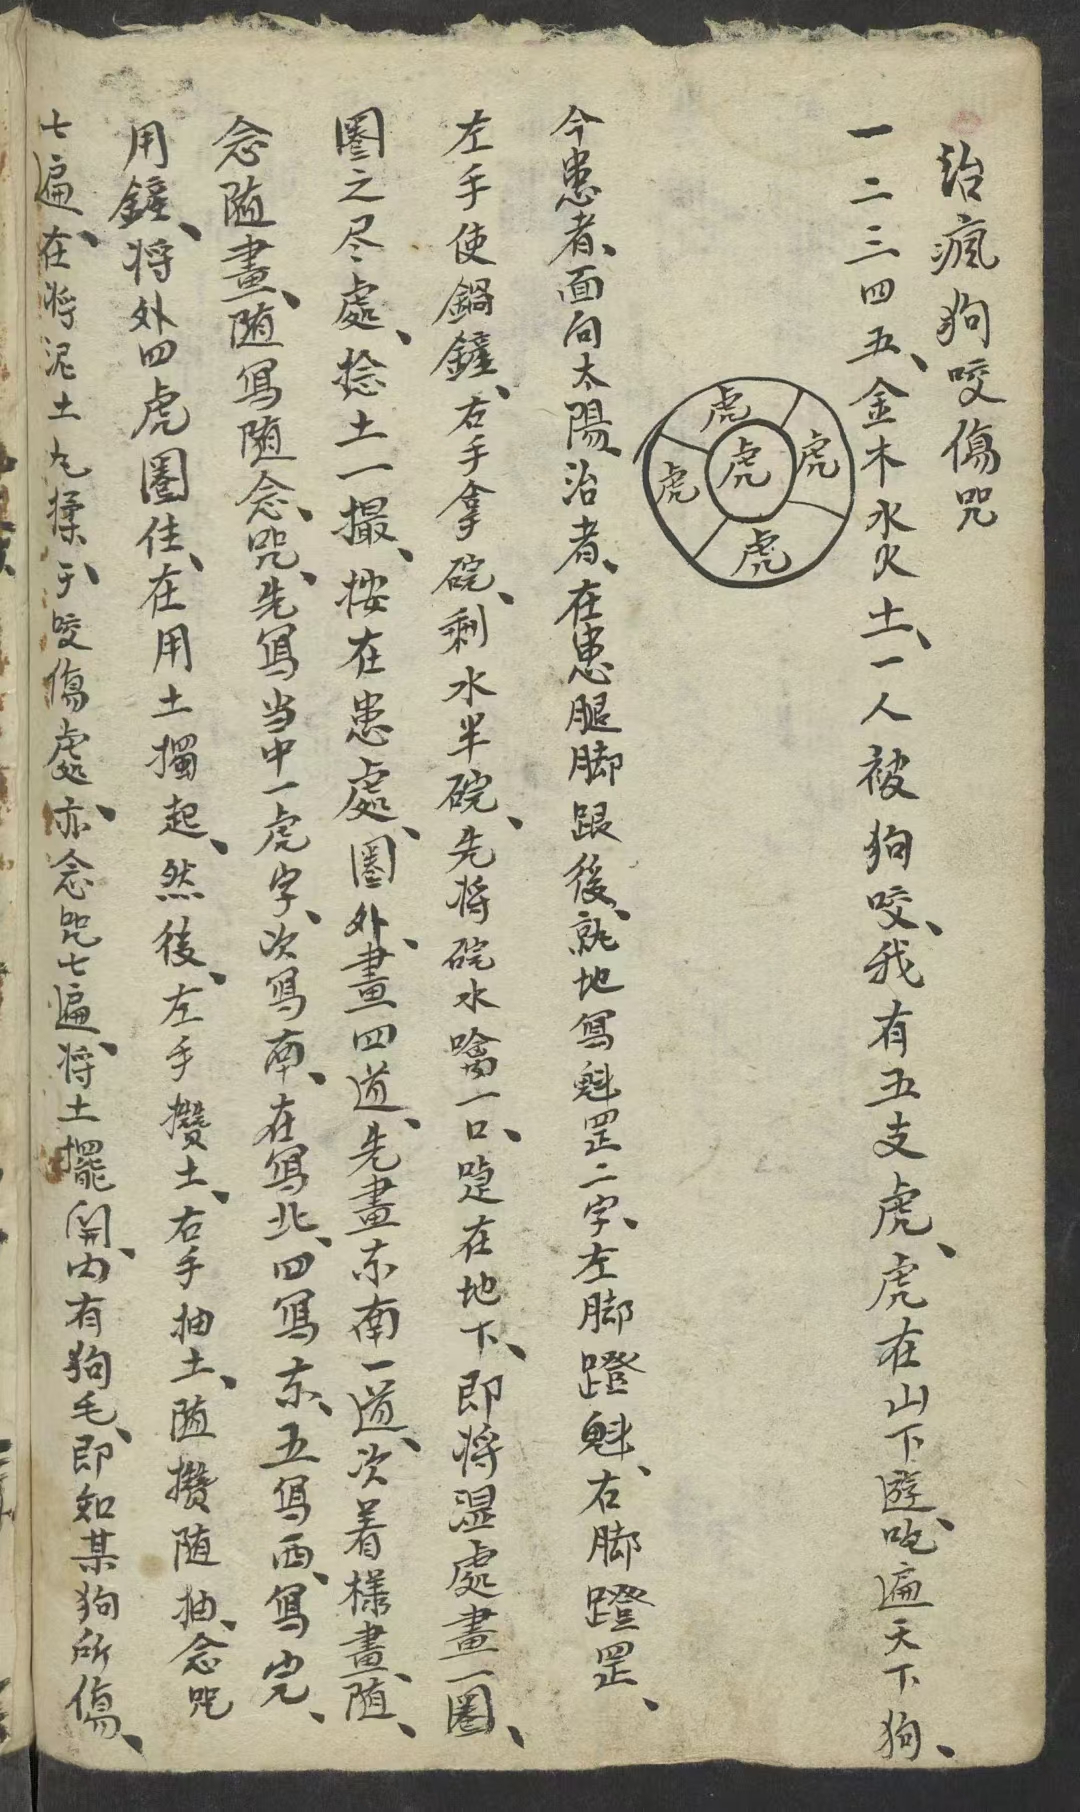 治瘋狗咬傷咒
一二三四五、金木水火土、一人被狗咬、我有五支虎、虎在山下遊、吃遍天下狗、
虎
虎
虎
虎
虎
今患者、面向太陽、治者、在患腿脚跟後、就地写魁罡二字、左脚蹬魁、右脚蹬罡、
左手使鍋鏟、右手拿碗、剩水半碗、先将碗水噙一口、噀在地下、即将湿處畫一圈、
圈之尽處、捻土一撮、按在患處、圈外、畫四道、先畫东南一道、次着樣畫、随、
念随畫、随写随念咒、先写当中一虎字、次写南、在写北、四写东、五写西、写完、
用鏟、将外四虎圈住、在用土擉起、然後、左手攢土、右手抽土、随攢随抽、念咒
七遍、在将泥土丸揉于、咬傷處、亦念咒七遍、将土擺開、内有狗毛、即如某狗所傷、